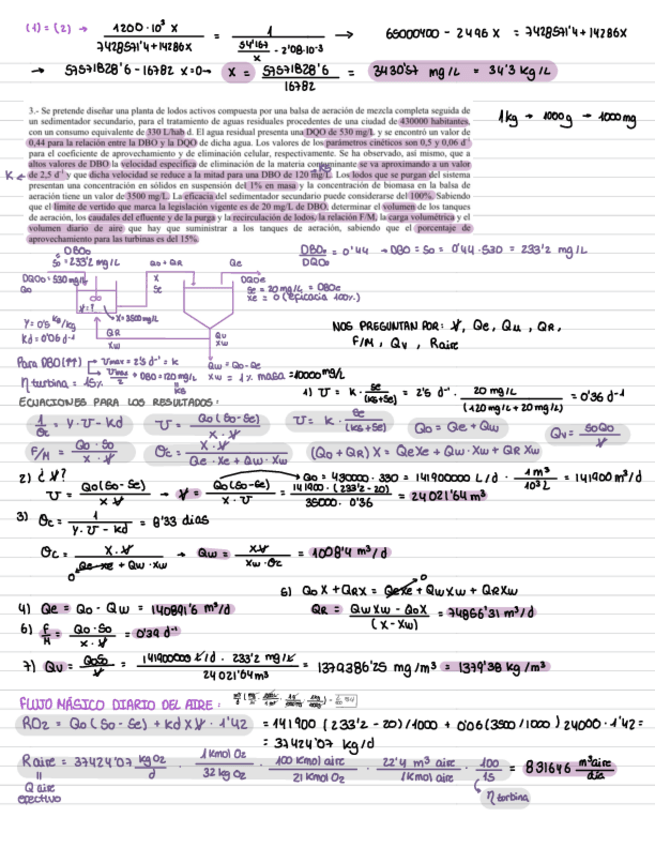 (1) = (2) → 1200·10³ X / 7428571'4 + 14286X = 1 / (54'167/X - 2'08·10⁻³) → 65000400 - 2496 X = 7428571'4 + 14286X
→ 57571828'6 - 16782 X = 0 → X = 57571828'6 / 16782 = 3430'57 mg/L = 34'3 kg/L
3.- Se pretende diseñar una planta de lodos activos compuesta por una balsa de aeración de mezcla completa seguida de
un sedimentador secundario, para el tratamiento de aguas residuales procedentes de una ciudad de 430000 habitantes,
con un consumo equivalente de 330 L/hab d. El agua residual presenta una DQO de 530 mg/L y se encontró un valor de
0,44 para la relación entre la DBO y la DQO de dicha agua. Los valores de los parámetros cinéticos son 0,5 y 0,06 d⁻¹
para el coeficiente de aprovechamiento y de eliminación celular, respectivamente. Se ha observado, así mismo, que a
altos valores de DBO la velocidad específica de eliminación de la materia contaminante se va aproximando a un valor
K ← de 2,5 d⁻¹ y que dicha velocidad se reduce a la mitad para una DBO de 120 mg/L. Los lodos que se purgan del sistema
presentan una concentración en sólidos en suspensión del 1% en masa y la concentración de biomasa en la balsa de
aeración tiene un valor de 3500 mg/L. La eficacia del sedimentador secundario puede considerarse del 100%. Sabiendo
que el límite de vertido que marca la legislación vigente es de 20 mg/L de DBO, determinar el volumen de los tanques
de aeración, los caudales del efluente y de la purga y la recirculación de lodos, la relación F/M, la carga volumétrica y el
volumen diario de aire que hay que suministrar a los tanques de aeración, sabiendo que el porcentaje de
aprovechamiento para las turbinas es del 15%.
1kg → 1000g → 1000mg
DBO₀
S₀ = 233'2 mg/L
Q₀ + QR
Qe
DBO₀ / DQO₀ = 0'44 → DBO = S₀ = 0'44 · 530 = 233'2 mg/L
DQO₀ = 530 mg/L
Q₀
X
Se
DQOe
Se = 20 mg/L = DBOe
Xe = 0 (eficacia 100%)
V = ?
X = 3500 mg/L
Y = 0'5 kg/kg
Kd = 0'06 d⁻¹
QR
Xw
Qu
Xw
NOS PREGUNTAN POR: V, Qe, Qu, QR,
F/M, Qv, Raire
Para DBO(↑↑) → Umax = 2'5 d⁻¹ = k
→ Umax / 2 → DBO = 120 mg/L
ks
Qw = Q₀ - Qe
Xw = 1% masa = 10000 mg/L
η turbina = 15%
1) U = k · Se / (ks + Se) = 2'5 d⁻¹ · 20 mg/L / (120 mg/L + 20 mg/L) = 0'36 d⁻¹
ECUACIONES PARA LOS RESULTADOS:
1/θc = Y · U - kd
U = Q₀(S₀ - Se) / X · V
U = k · Se / (ks + Se)
Q₀ = Qe + Qw
Qv = S₀Q₀ / V
F/M = Q₀ · S₀ / X · V
θc = X · V / Qe · Xe + Qw · Xw
(Q₀ + QR) X = QeXe + Qw · Xw + QR Xw
2) ¿V?
Q₀ = 430000 · 330 = 141900000 L/d · 1 m³ / 10³ L = 141900 m³/d
U = Q₀(S₀ - Se) / X V → V = Q₀(S₀ - Se) / X · U = 141900 · (233'2 - 20) / 35000 · 0'36 = 24021'64 m³
3) θc = 1 / Y · U - kd = 8'33 dias
θc = X · V / Qe · Xe + Qw · Xw → Qw = XV / Xw · θc = 1008'4 m³/d
0
5) Q₀X + QRX = QeXe + QwXw + QRXw
0
4) Qe = Q₀ - Qw = 140891'6 m³/d
QR = QwXw - Q₀X / (X - Xw) = 74866'31 m³/d
6) F/M = Q₀ · S₀ / X · V = 0'39 d⁻¹
7) Qv = Q₀S₀ / V = 141900000 L/d · 233'2 mg/L / 24021'64 m³ = 1379386'25 mg/m³ = 1379'38 kg/m³
FLUJO MÁSICO DIARIO DEL AIRE:
RO₂ = Q₀(S₀ - Se) + kd X V · 1'42 = 141900 (233'2 - 20)/1000 + 0'06 (3500/1000) 24000 · 1'42 =
= 37424'07 kg/d
Raire = 37424'07 kg O₂ / d · 1 Kmol O₂ / 32 kg O₂ · 100 Kmol aire / 21 Kmol O₂ · 22'4 m³ aire / 1 Kmol aire · 100 / 15 = 831646 m³ aire / dia
Q aire
efectivo
η turbina